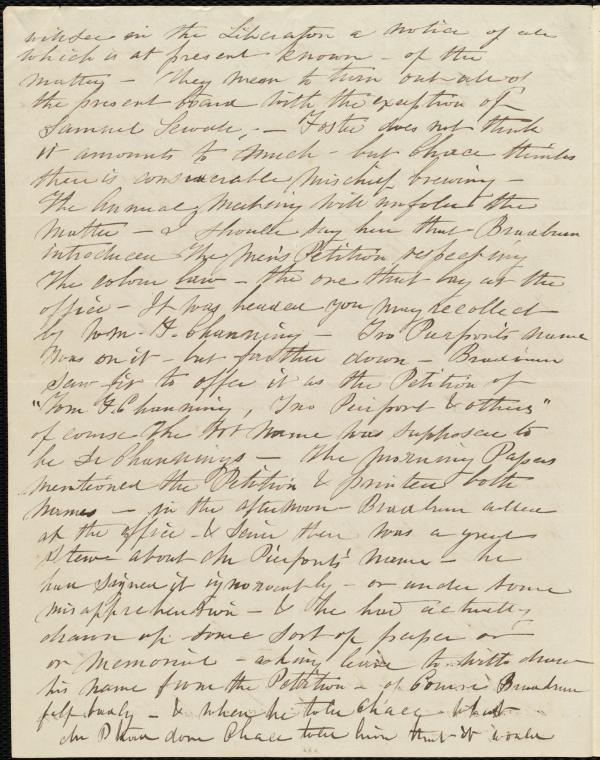 will see in the Liberator a notice of all
which is at present known - of the
matter - They mean to turn out all of
the present board with the exception of
Samuel Sewall, - Foster does not think
it amounts to much - but Chace thinks
there is considerable mischief brewing -
The Annual Meeting will unfold the
matter - I should say here that Bradburn
introduced the men's Petition respecting
the colour law - the one that lay at the
office - It was headed you may recollect
by Wm F. Channing - Jno Pierpont's name
was on it - but further down - Bradburn
saw fit to offer it as the Petition of
"Wm F. Channing, Jno Pierpont & others"
of course the 1st name was supposed to
be Dr Channings - The morning Papers
mentioned the Petition & printed both
names - in the afternoon Bradburn called
at the office - & said there was a great
stew about Mr Pierponts' name - he
had signed it ignorantly - or under some
misapprehension - & he had actually
drawn up some sort of paper or
or memorial - asking leave to withdraw
his name from the Petition - of Course Bradburn
felt badly - & when he told Chace what
Mr P. had done Chace told him that it would